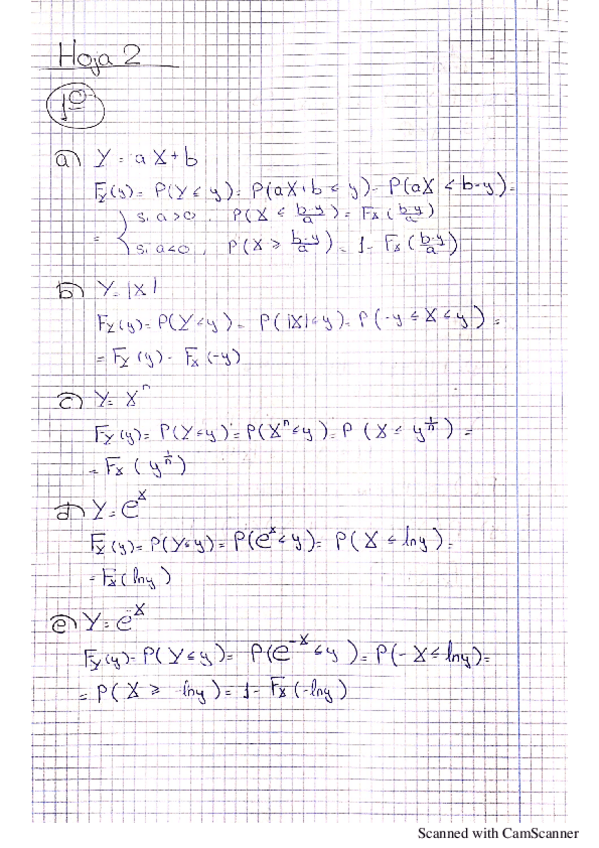 Hoja 2
1º
a) Y = aX+b
F_Y(y) = P(Y ≤ y) = P(aX+b ≤ y) = P(aX ≤ b-y) =
= { si a>0, P(X ≤ \frac{b-y}{a}) = F_X(\frac{b-y}{a})
si a<0, P(X ≥ \frac{b-y}{a}) = 1 - F_X(\frac{b-y}{a})
b) Y = |X|
F_Y(y) = P(Y ≤ y) = P(|X| ≤ y) = P(-y ≤ X ≤ y) =
= F_X(y) - F_X(-y)
c) Y = X^n
F_Y(y) = P(Y ≤ y) = P(X^n ≤ y) = P(X ≤ y^{\frac{1}{n}}) =
= F_X(y^{\frac{1}{n}})
d) Y = e^X
F_Y(y) = P(Y ≤ y) = P(e^X ≤ y) = P(X ≤ ln y) =
= F_X(ln y)
e) Y = e^{-X}
F_Y(y) = P(Y ≤ y) = P(e^{-X} ≤ y) = P(-X ≤ ln y) =
= P(X ≥ -ln y) = 1 - F_X(-ln y)
Scanned with CamScanner